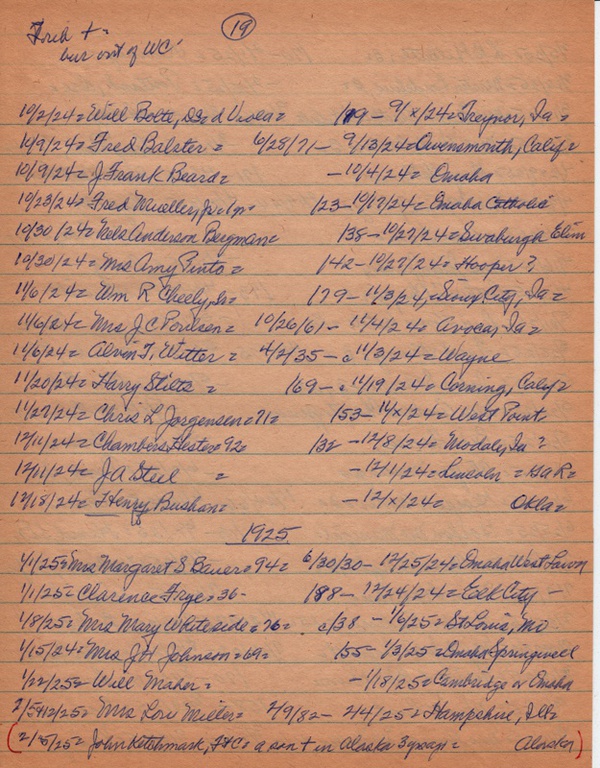 19
but out of WC.
10/2/24 = Will Bolte, Ds = d Viola = 1/79 - 9/x/24 = Treynor, Ia =
10/9/24 = Fred Balster = 6/28/71 - 9/13/24 = Owensmouth, Calif =
10/9/24 = J. Frank Beard = - 10/4/24 = Omaha
10/23/24 = Fred Mueller, Jr = 1/23 - 10/17/24 = Omaha Catholic
10/30/24 = Nels Anderson Bergman = 1/38 - 10/27/24 = Swaburgh Elim
10/30/24 = Mrs Amy Pinto = 1/42 - 10/27/24 = Hooper ?
11/6/24 = Wm R Cheely, Sr = 1/79 - 11/3/24, = Sioux City, Ia =
11/6/24 = Mrs J C Poulsen = 10/26/61 - 11/4/24 = Avoca, Ia =
11/6/24 = Alvin T, Witter = 4/2/35 - c 11/3/24 = Wayne
11/20/24 = Harry Stilts = 1/69 - c 11/19/24 = Corning, Calif =
11/27/24 = Chris L Jorgensen = 71 = 1/53 - 11/x/24 = West Point
12/11/24 = Chambers Hester = 92 = 1/32 - 12/8/24 = Modale, Ia ?
12/11/24 = J A Steel = - 12/1/24 = Lincoln = GAR =
12/18/24 = Henry Bushan = - 12/x/24 = Okla =
1925
1/1/25 = Mrs Margaret S Bauer = 94 = 6/30/30 - 12/25/24 = Omaha West Lawn
1/1/25 = Clarence Frye = 36 - 1/88 - 12/24/24 = Elk City -
1/8/25 = Mrs Mary Whiteside = 76 = c/38 - 1/6/25 = St Louis, Mo
1/15/24 = Mrs J H Johnson = 69 = 1/55 - 1/3/25 = Omaha Springwell
1/22/25 = Will Maher = - 1/18/25 = Cambridge or Omaha
2/5+12/25 = Mrs Lou Miller = 2/9/82 - 2/4/25 = Hampshire, Ill =
(2/5/25 = John Ketchmark, FtC = a son + in Alaska 3 yrs ago = Alaska)